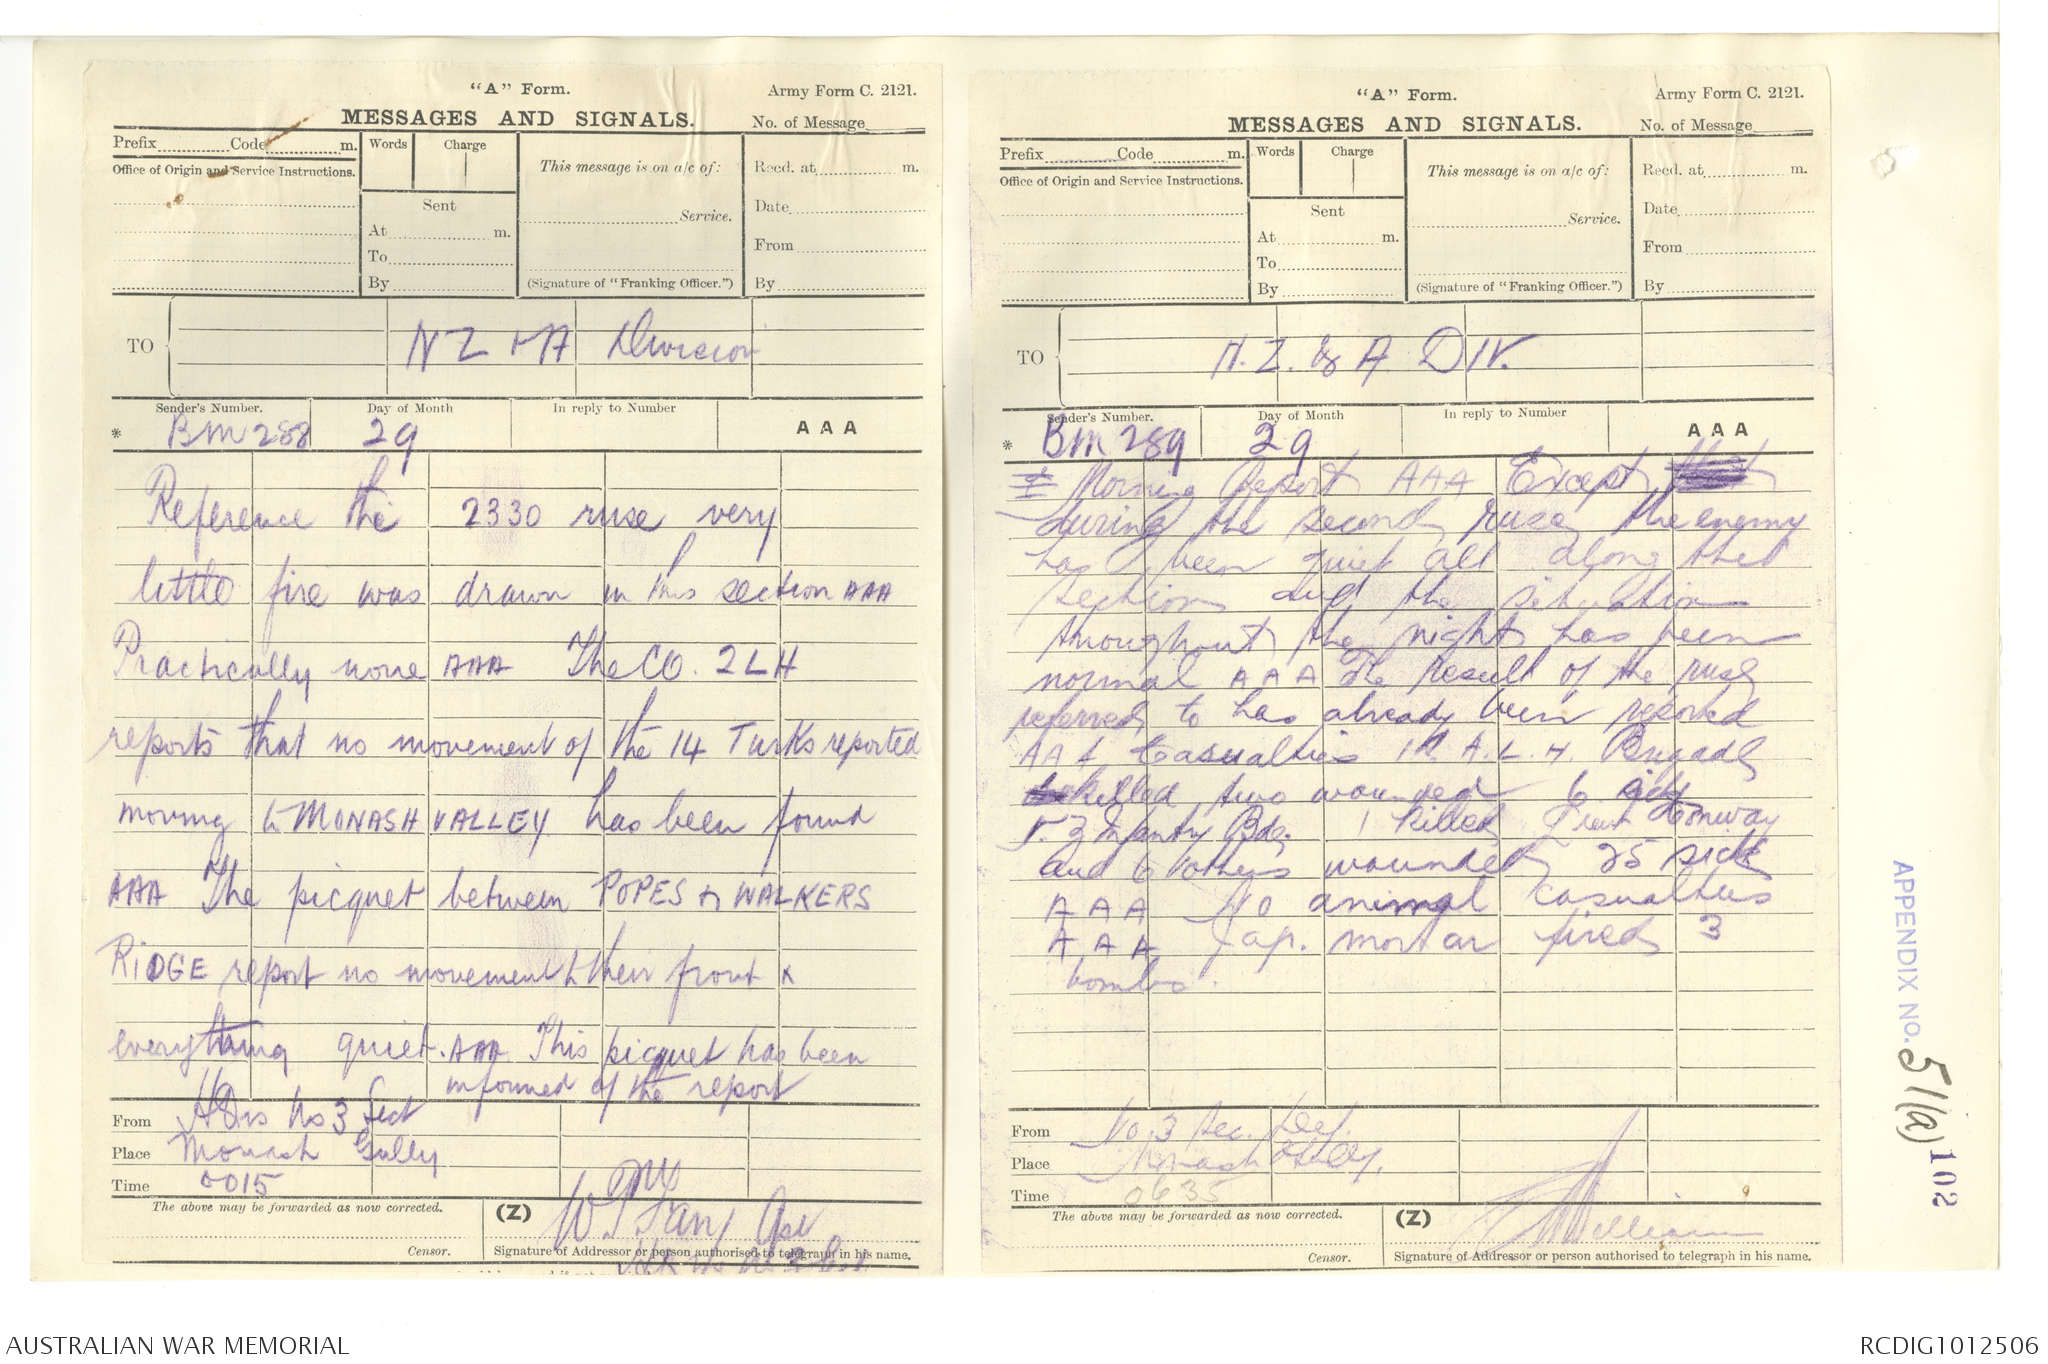 "A" Form.
Army Form C. 2121.
MESSAGES AND SIGNALS.
No. of Message
Prefix Code m.
Words Charge
This message is on a/c of:
Recd. at m.
Office of Origin and Service Instructions.
Sent
Date
Service.
At m.
From
To
By
(Signature of "Franking Officer.")
By
TO
NZ & A Division
Sender's Number.
Day of Month
In reply to Number
* BM 288
29
AAA
Reference the 2330 ruse very
little fire was drawn in this section AAA
Practically none AAA The CO. 2 LH
reports that no movement of the 14 Turks reported
moving to MONASH VALLEY has been found
AAA The picquet between POPES & WALKERS
RIDGE report no movement to their front &
everything quiet. AAA This picquet has been
informed of the report
From Hdrs No 3 Sect
Place Monash Gully
Time 0015
The above may be forwarded as now corrected.
(Z)
Censor.
Signature of Addressor or person authorised to telegraph in his name.
"A" Form.
Army Form C. 2121.
MESSAGES AND SIGNALS.
No. of Message
Prefix Code m.
Words Charge
This message is on a/c of:
Recd. at m.
Office of Origin and Service Instructions.
Sent
Date
Service.
At m.
From
To
By
(Signature of "Franking Officer.")
By
TO
N.Z. & A DIV.
Sender's Number.
Day of Month
In reply to Number
* BM 289
29
AAA
Morning Report AAA Except
during the second ruse the enemy
has been quiet all along the
section and the situation
throughout the night has been
normal AAA The result of the ruse
referred to has already been
AAA Casualties 1st A.L.H. Brigade
killed two wounded 6 sick
N.Z Infantry Bde. 1 killed Lieut Conway
and 6 others wounded 25 sick
AAA No animal casualties
AAA Jap. mortar fired 3
bombs.
From No. 3 Sec. Def.
Place Monash Gully.
Time 0635
The above may be forwarded as now corrected.
(Z)
Censor.
Signature of Addressor or person authorised to telegraph in his name.
APPENDIX NO. 51(a) 102
AUSTRALIAN WAR MEMORIAL
RCDIG1012506